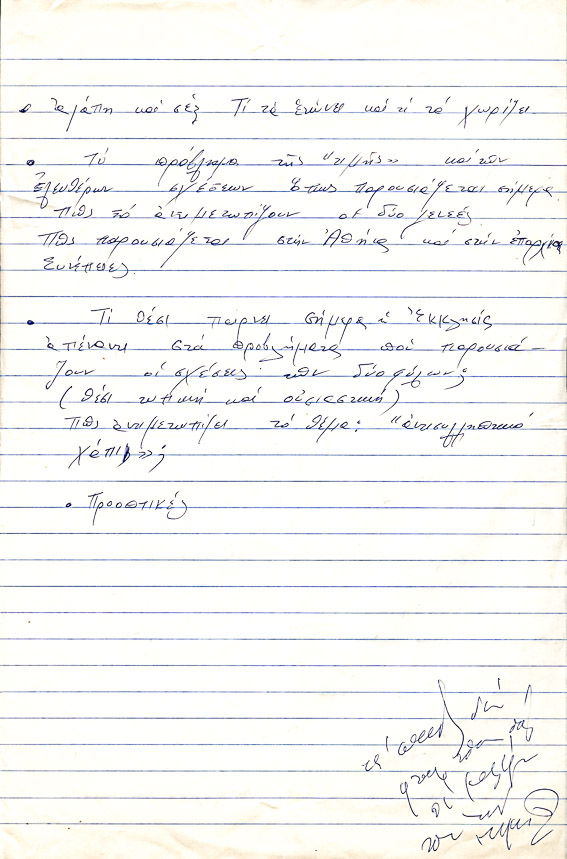 • Ἀγάπη καί σέξ Τί τά ἑνώνει καί τί τά χωρίζει
• Τό πρόβλημα τῆς "τιμῆς" καί τῶν
ἐλευθέρων σχέσεων ὅπως παρουσιάζεται σήμερα
Πῶς τό ἀντιμετωπίζουν οἱ δύο γενεές
Πῶς παρουσιάζεται στήν Ἀθήνα καί στήν ἐπαρχία
Συνέπειες
• Τί θέσι παίρνει σήμερα ἡ Ἐκκλησία
ἀπέναντι στά προβλήματα πού παρουσιά-
ζουν οἱ σχέσεις τῶν δύο φύλων;
(θέσι τυπική καί οὐσιαστική)
Πῶς ἀντιμετωπίζει τό θέμα: "ἀντισυλληπτικά
χάπια";
• Προοπτικές